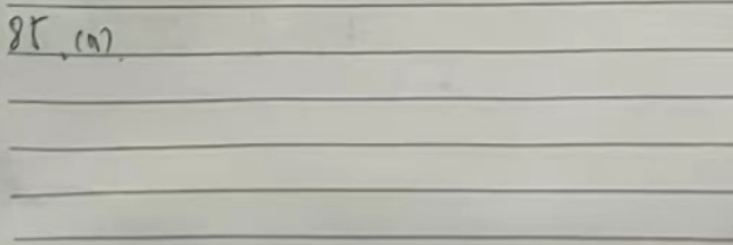 85. (a).